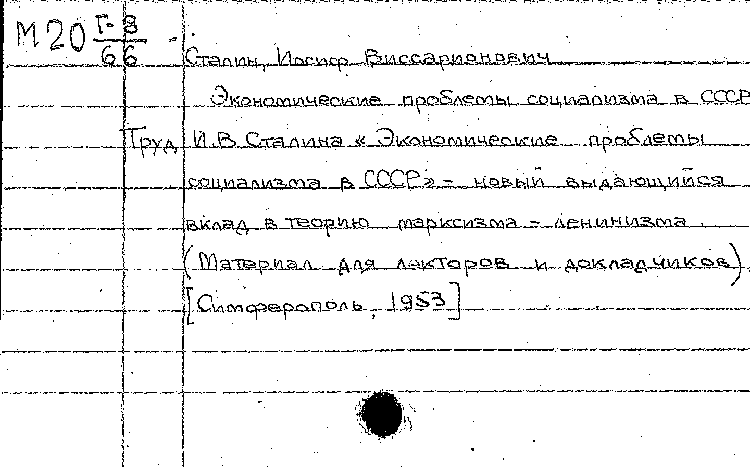 М20 Г-8
66
Сталин, Иосиф Виссарионович
Экономические проблемы социализма в СССР
Труд И.В Сталина « Экономические проблемы
социализма в СССР» - новый выдающийся
вклад в теорию марксизма - ленинизма.
(Материал для лекторов и докладчиков)
[Симферополь, 1953]